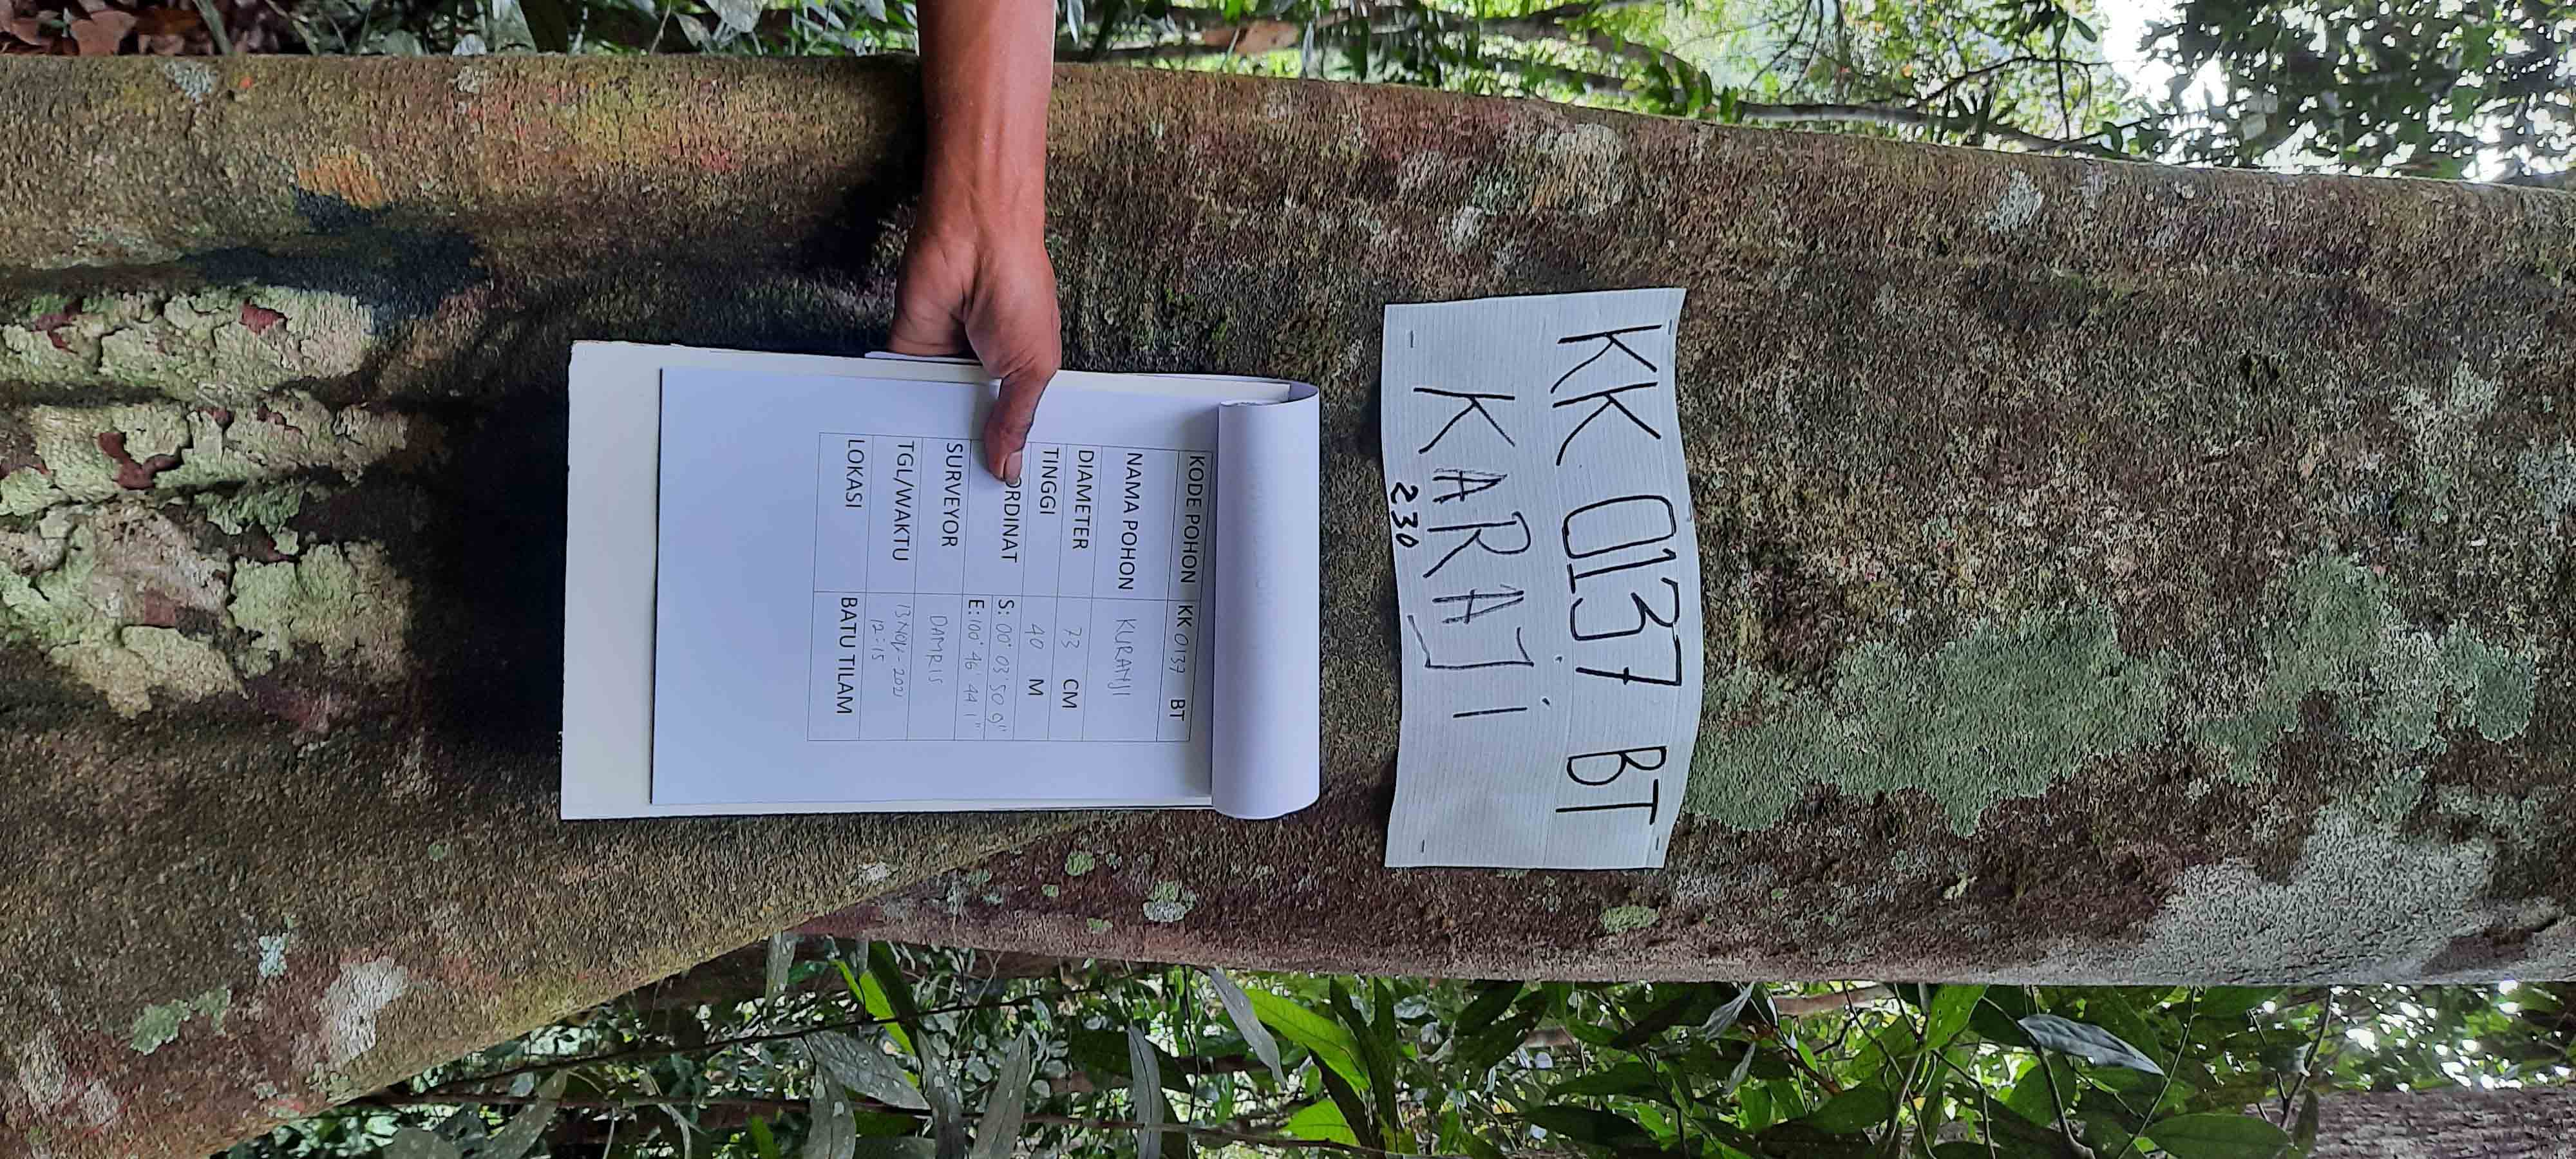 KK 0137 BT
KARAJi
230
KODE POHON KK 0137 BT
NAMA POHON KURANJI
DIAMETER 73 CM
TINGGI 40 M
ORDINAT S: 00° 03' 50 9"
E: 100° 46' 44 1"
SURVEYOR DAMRIS
TGL/WAKTU 13 NOV - 2021
12:15
LOKASI BATU TILAM